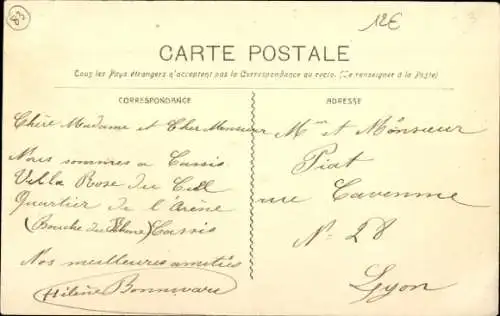 83
12€
CARTE POSTALE
Tous les Pays étrangers n'acceptent pas la Correspondance au recto. (Se renseigner à la Poste)
CORRESPONDANCE
Chère Madame et Cher Monsieur
Nous sommes a Cassis
Villa Rose du Ciel
Quartier de l'Arène
(Bouche du Rhône) Cassis
Nos meilleures amitiés
Hélène
ADRESSE
Mme et Monsieur
Piat
rue Cavenne
N° 28
Lyon